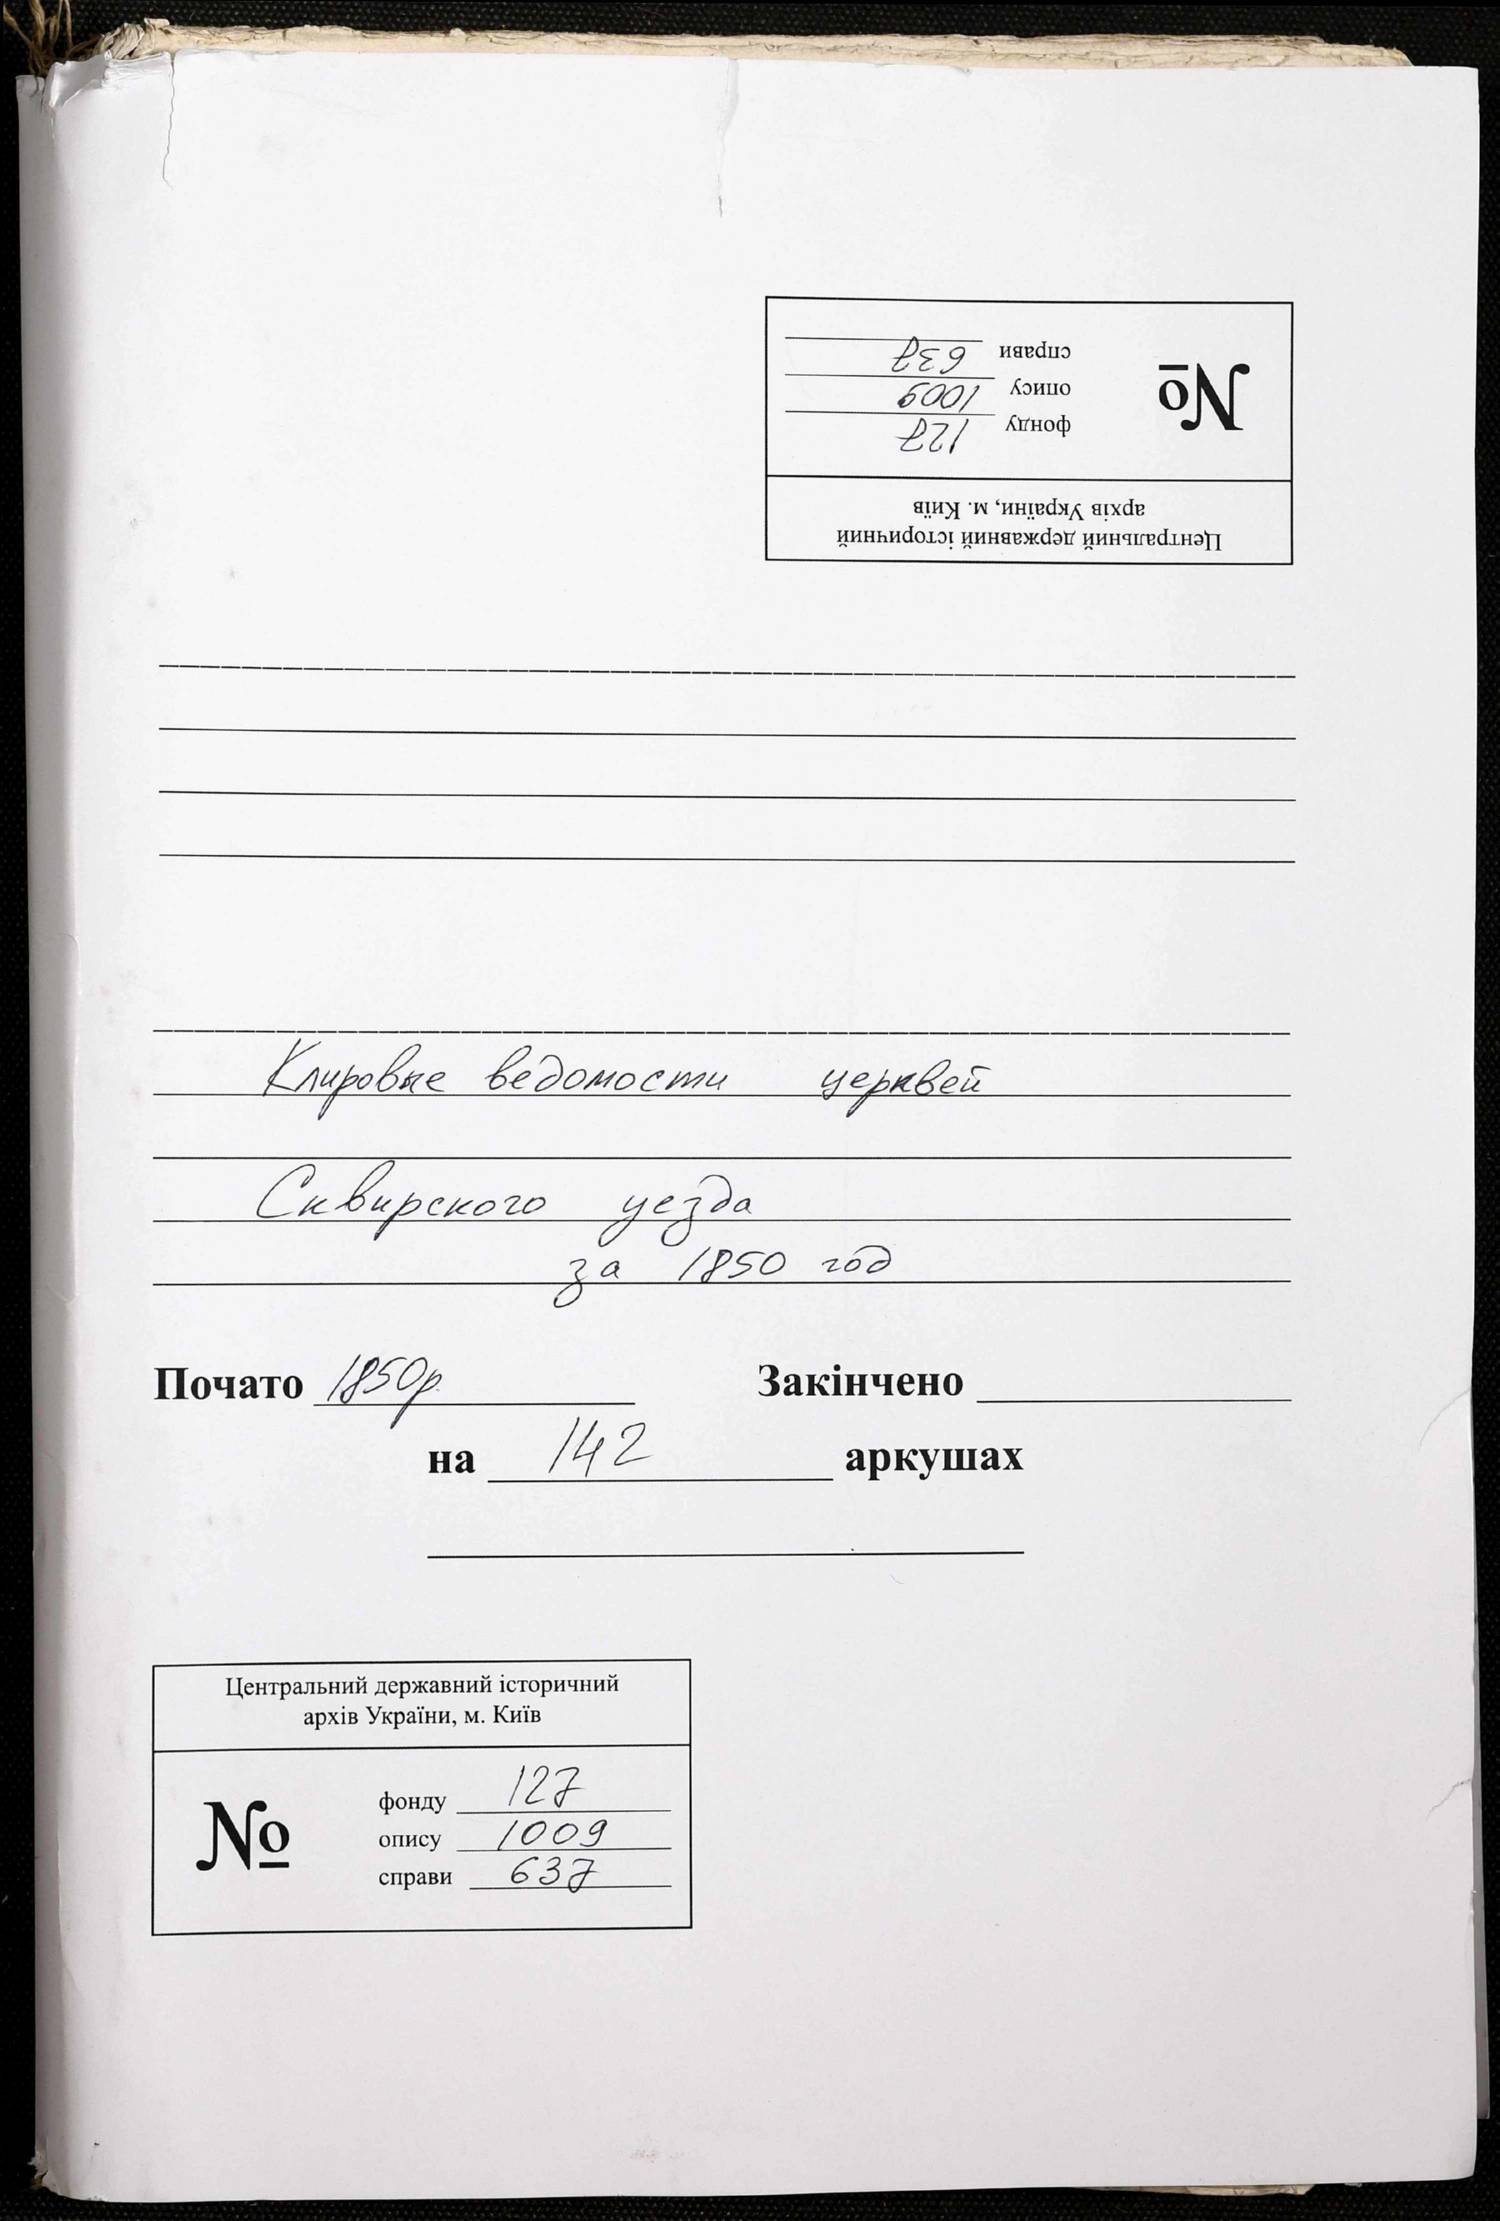 Центральний державний історичний
архів України, м. Київ
№
фонду 127
опису 1009
справи 637
Клировые ведомости церквей
Сквирского уезда
за 1850 год
Почато 1850р. Закінчено
на 142 аркушах
Центральний державний історичний
архів України, м. Київ
№
фонду 127
опису 1009
справи 637